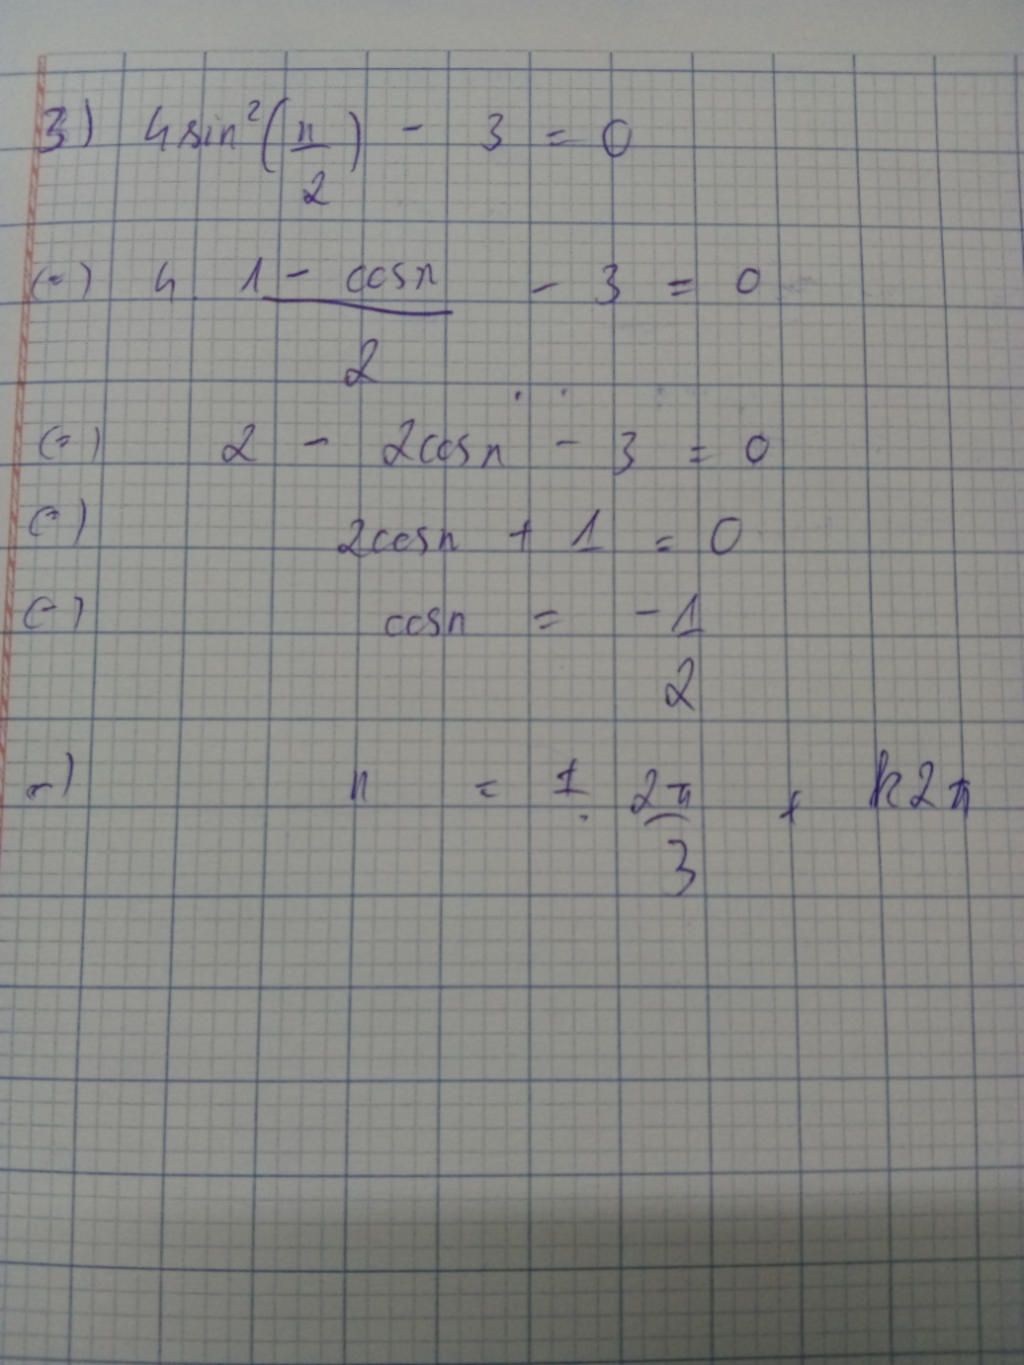 3) 4sin²(x/2) - 3 = 0
(=) 4. (1 - cosx)/2 - 3 = 0
(=) 2 - 2cosx - 3 = 0
(=) 2cosx + 1 = 0
(=) cosx = -1/2
=) x = ± 2π/3 + k2π